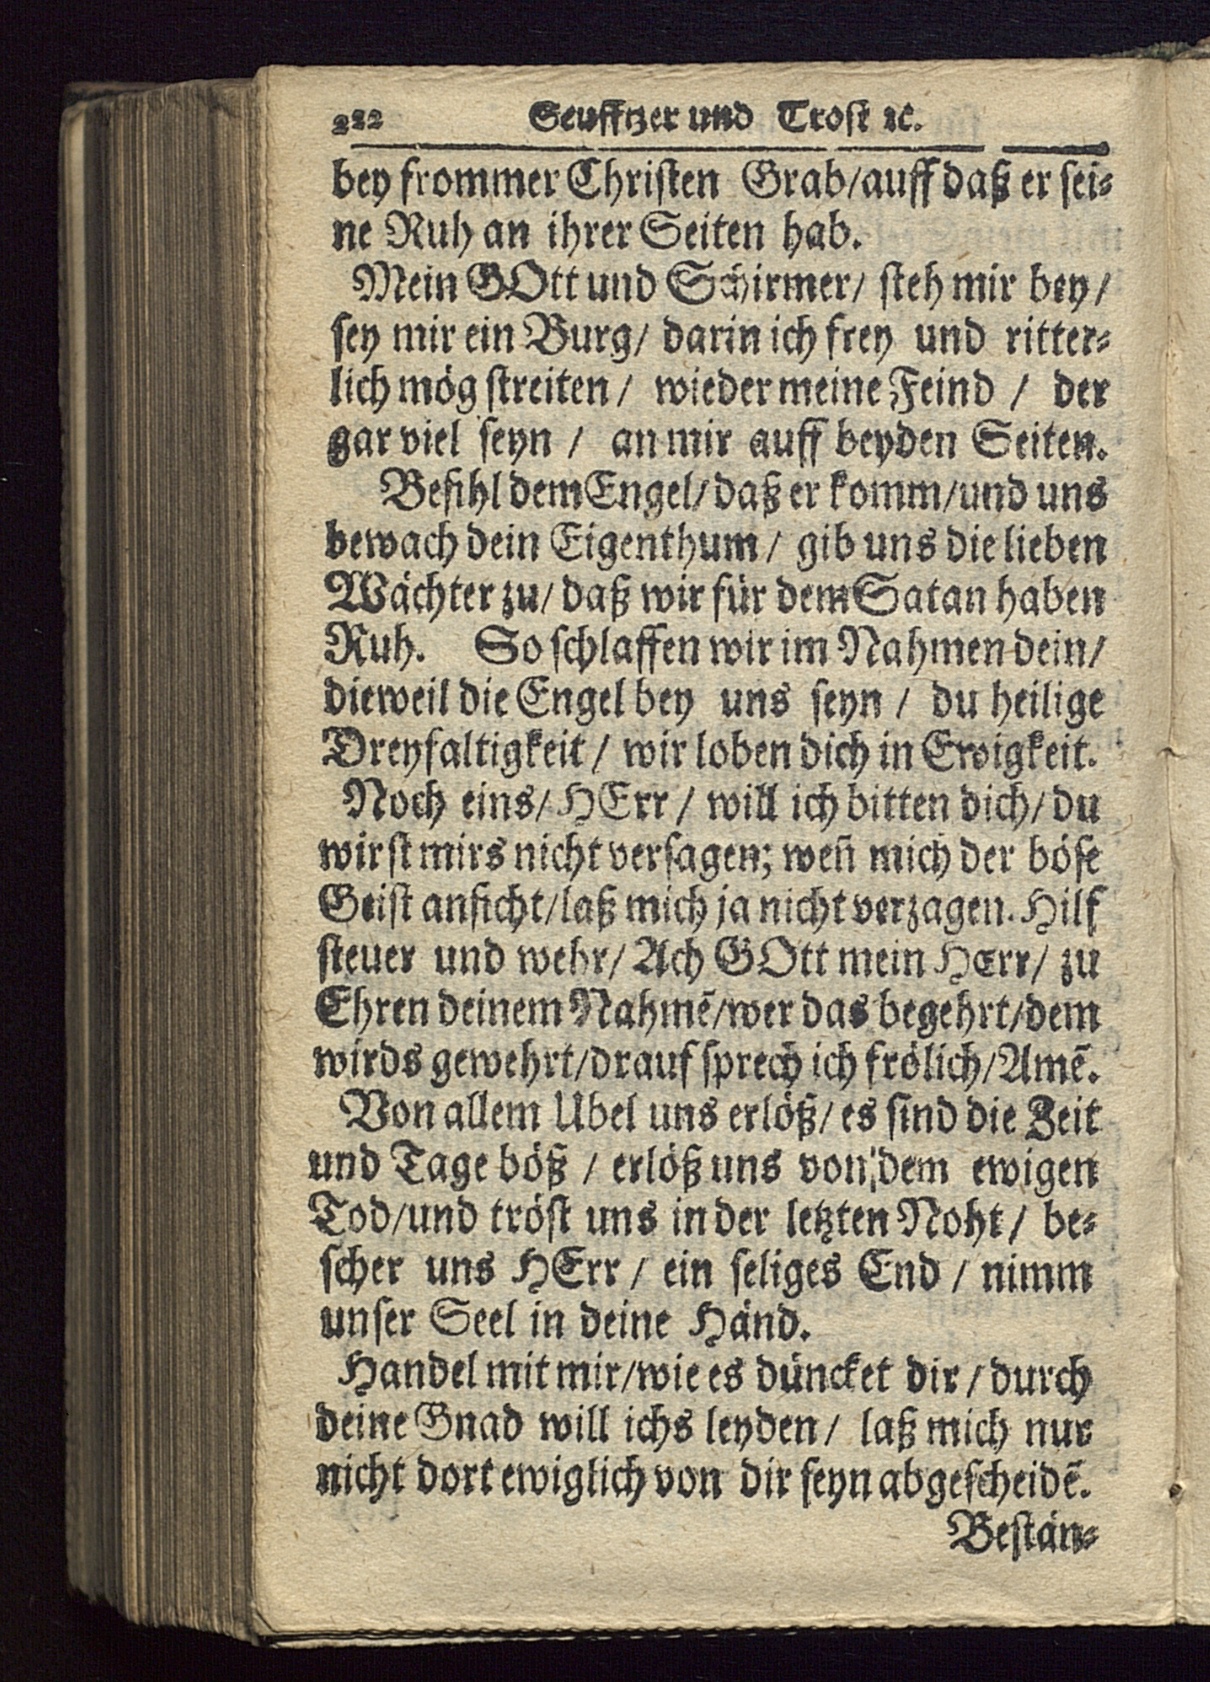 222 Seufftzer und Trost ꝛc.
bey frommer Christen Grab/auff daß er sei⸗
ne Ruh an ihrer Seiten hab.
Mein GOtt und Schirmer/ steh mir bey/
sey mir ein Burg/ darin ich frey und ritter⸗
lich mög streiten/ wieder meine Feind / der
gar viel seyn / an mir auff beyden Seiten.
Befihl dem Engel/daß er komm/und uns
bewach dein Eigenthum/ gib uns die lieben
Wächter zu/daß wir für dem Satan haben
Ruh. So schlaffen wir im Nahmen dein/
dieweil die Engel bey uns seyn / du heilige
Dreyfaltigkeit/ wir loben dich in Ewigkeit.
Noch eins/HErr / will ich bitten dich/du
wirst mirs nicht versagen; weñ mich der böse
Geist anficht/laß mich ja nicht verzagen. Hilf
steuer und wehr/ Ach GOtt mein HErr/ zu
Ehren deinem Nahmẽ/wer das begehrt/dem
wirds gewehrt/drauf sprech ich frölich/Amẽ.
Von allem Ubel uns erlöß/es sind die Zeit
und Tage böß / erlöß uns von dem ewigen
Tod/und tröst uns in der letzten Noht/ be⸗
scher uns HErr / ein seliges End / nimm
unser Seel in deine Händ.
Handel mit mir/wie es düncket dir/durch
deine Gnad will ichs leyden/ laß mich nur
nicht dort ewiglich von dir seyn abgescheidẽ.
Bestän⸗